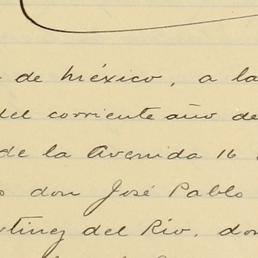 de México, a la
del corriente año de
de la Avenida 16
don José Pablo
tínez del Río, don